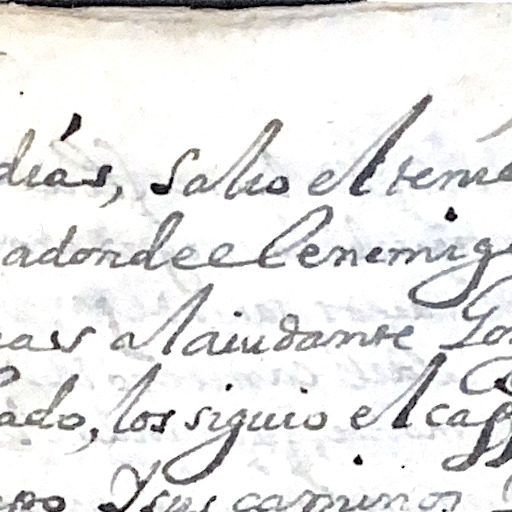 dias, salio el tenie
adonde el enemigo
al aiudante
ado, los siguio el cap
y sus caminos